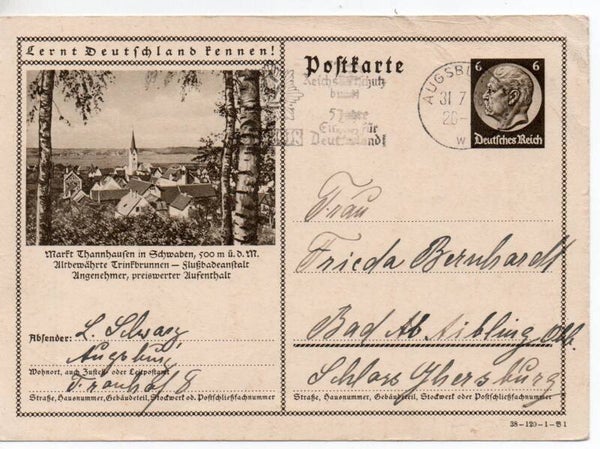 Lernt Deutschland kennen!
Markt Thannhausen in Schwaben, 500 m ü. d. M.
Altbewährte Trinkbrunnen – Flußbadeanstalt
Angenehmer, preiswerter Aufenthalt
Absender: L. Schwarz
Augsburg
Wohnort, auch Zustell- oder Leitpostamt
8
Straße, Hausnummer, Gebäudeteil, Stockwerk od. Postschließfachnummer
Postkarte
5 Jahre
für
Deutschland!
AUGSBU
31 7
20-
W
6 6
Deutsches Reich
Frau
Frieda Bernhardt
Bad Aibling Obb.
Schloss
Straße, Hausnummer, Gebäudeteil, Stockwerk oder Postschließfachnummer
38-120-1-B1